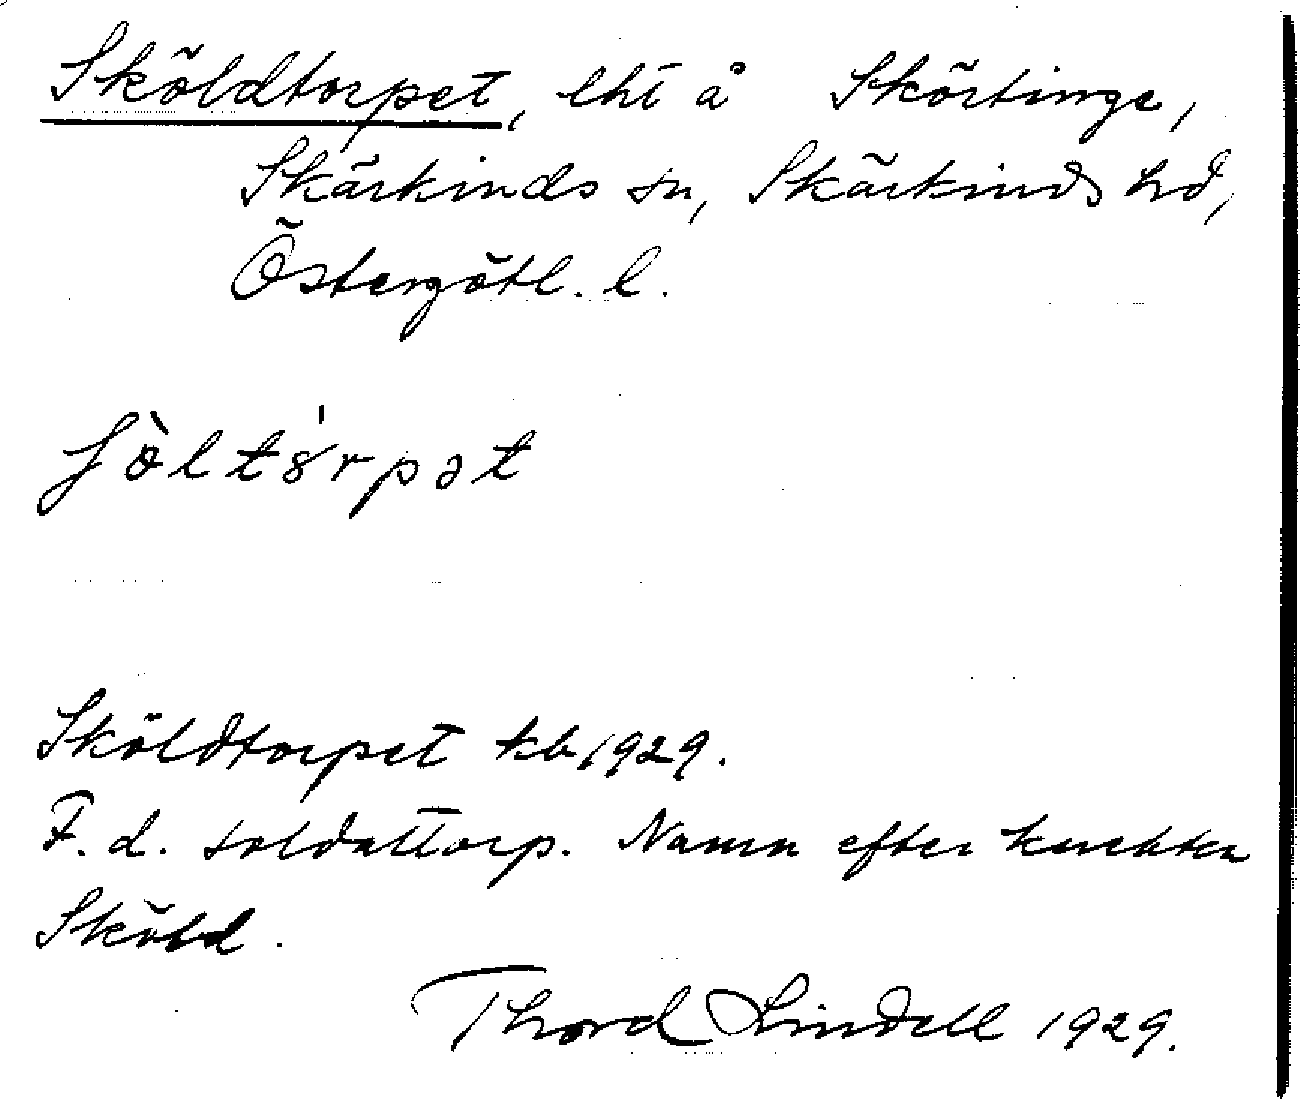 Sköldtorpet, lht å Skörtinge,
Skärkinds sn, Skärkinds hd,
Östergötl. l.
ʃö̀ltó̤rpət
Sköldtorpet kb 1929.
F. d. soldattorp. Namn efter knekten
Sköld.
Thord Lindell 1929.